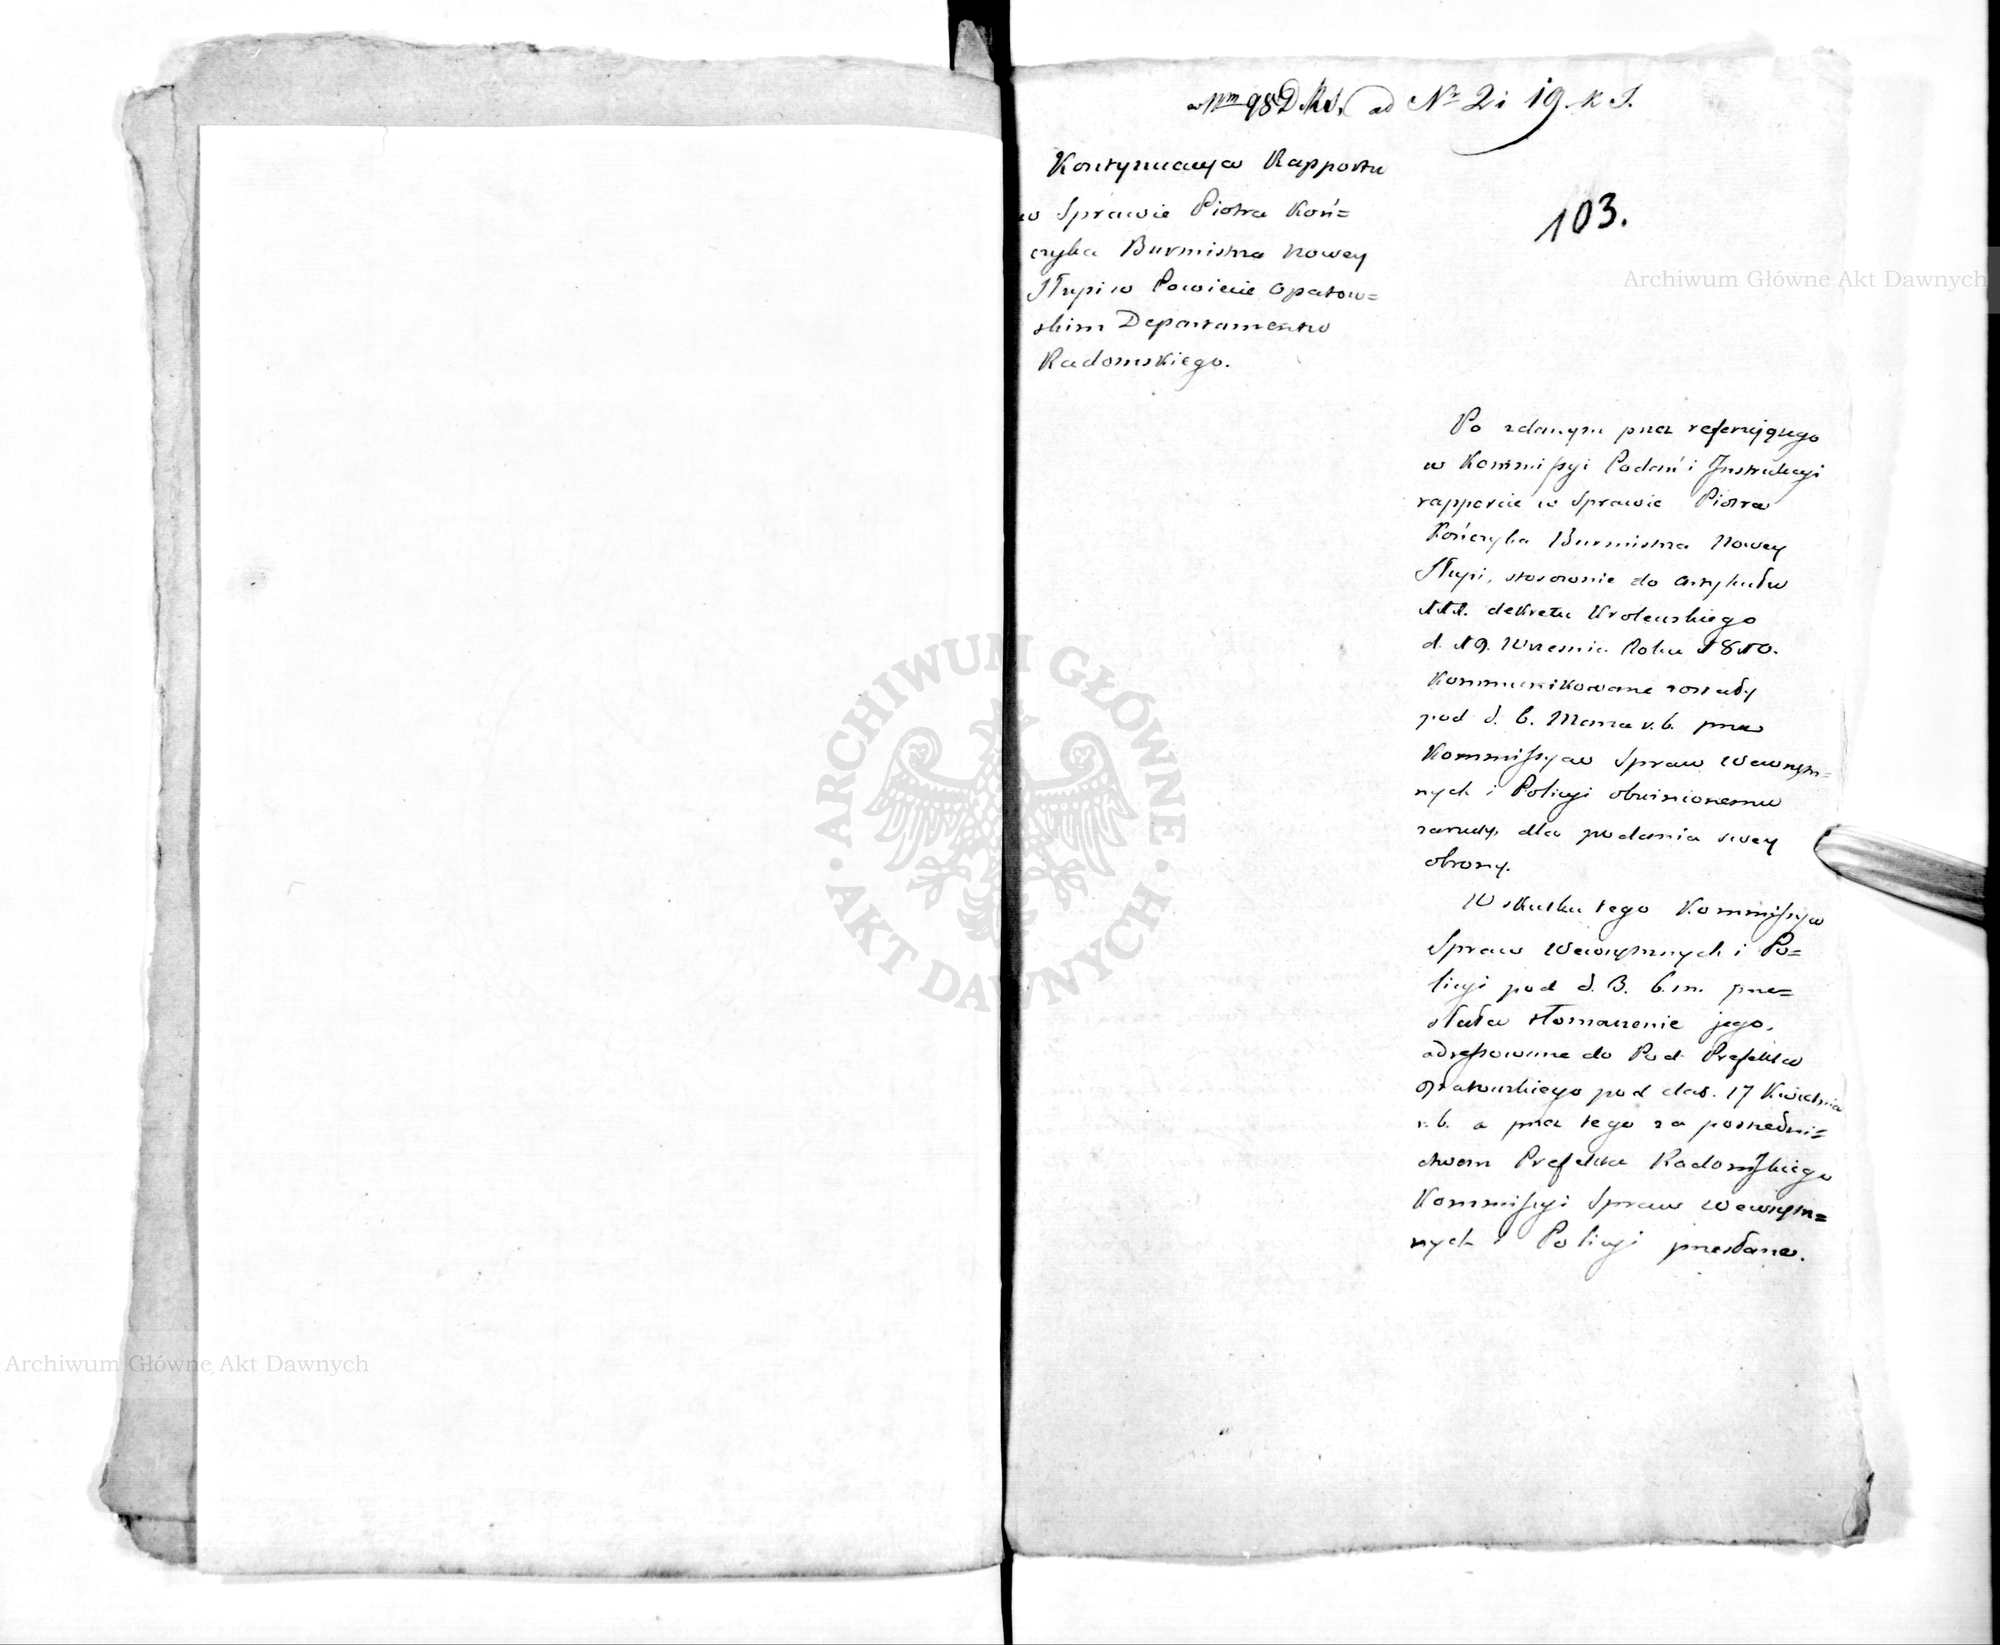 ad Nr 2 i 19. k S.
103.
Kontynuacya Rapportu
w Sprawie Piotra Koń=
czyka Burmistrza Nowey
Słupi w Powiecie Opatow=
skim Departamentu
Radomskiego.
Po zdanym przez referuiącego
w Kommissyi Podań i Instrukcyi
rapporcie w Sprawie Piotra
Kończyka Burmistrza Nowey
Słupi, stosownie do Artykułu
111. dekretu Krolewskiego
d. 19. Wrzesnia Roku 1810.
Kommunikowane zostały
pod d. 6. Marca r. b. przez
Kommissyą Spraw Wewnętrz=
nych i Policyi obwinionemu
zarzuty, dla podania swey
obrony.
W skutku tego Kommissya
Spraw Wewnętrznych i Po=
licyi pod d. 3. b. m. prze=
słała tłomaczenie jego,
adressowane do Pod Prefekta
Opatowskiego pod dat. 17 Kwietnia
r. b. a przez tego za posredni=
ctwem Prefekta Radomskiego
Kommissyi Spraw Wewnętrz=
nych i Policyi przesłane.
Archiwum Główne Akt Dawnych
ARCHIWUM GŁÓWNE
AKT DAWNYCH
Archiwum Główne Akt Dawnych